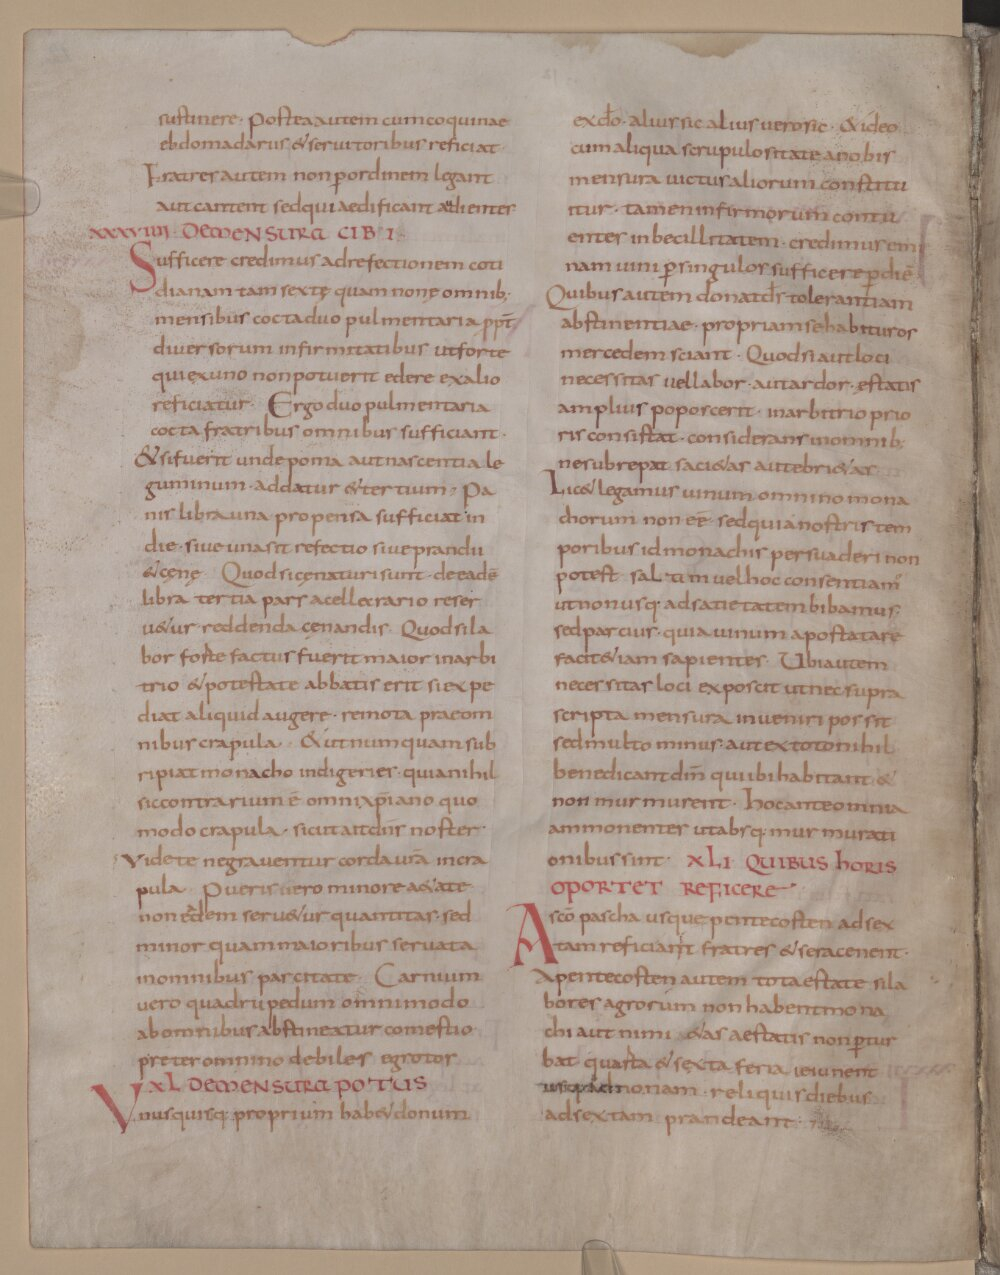 sustinere · Postea autem cum coquinae
ebdomadariis & seruitoribus reficiat ·
Fratres autem non p ordinem legant
aut cantent sed qui aedificant audientes
XXXVIIII · DE MENSURA CIBI ·
Sufficere credimus ad refectionem coti
dianam tam sextę quam nonę omnib;
mensibus cocta duo pulmentaria ppt̄
diuersorum infirmitatibus ut forte
qui ex uno non potuerit edere ex alio
reficiatur · Ergo duo pulmentaria
cocta fratribus omnibus sufficiant ·
& si fuerit unde poma aut nascentia le
guminum · addatur & tertium · Pa
nis libra una propensa sufficiat in
die · siue una sit refectio siue prandii
& cenę · Quod si cenaturi sunt · de eadē
libra tertia pars a cellerario reser
u&ur · reddenda cenandis · Quod si la
bor forte factus fuerit maior in arbi
trio & potestate abbatis erit si expe
diat aliquid augere · remota prae om
nibus crapula · & ut numquam sub
ripiat monacho indigeries · quia nihil
sic contrarium ē omni xp̄iano quo
modo crapula · sicut ait dn̄s noster ·
Videte ne grauentur corda ur̄a in cra
pula · Pueris uero minore a&ate
non eadem seru&ur quantitas · sed
minor quam maioribus seruata
in omnibus parcitate · Carnium
uero quadrupedum omnimodo
ab omnibus abstineatur comestio
preter omnino debiles egrotos
XL DE MENSURA POTUS
Vnusquisq; proprium hab& donum
ex do · alius sic alius uero sic · & ideo
cum aliqua scrupulositate a nobis
mensura uictus aliorum constitu
itur · tamen infirmorum contu
entes inbecillitatem · credimus emi
nam uini p singulos sufficere p diē ·
Quibus autem donat ds̄ tolerantiam
abstinentiae · propriam se habituros
mercedem sciant · Quod si aut loci
necessitas uel labor · aut ardor · estatis
amplius poposcerit · in arbitrio prio
ris consistat · considerans in omnib;
ne subrepat saci&as aut ebri&as
Lic& legamus uinum omnino mona
chorum non eē · sed quia nostris tem
poribus id monachis persuaderi non
potest sal tim uel hoc consentiam'
ut non usq; ad satietatem bibamus ·
sed parcius · quia uinum apostatare
facit &iam sapientes · Ubi autem
necessitas loci exposcit ut nec supra
scripta mensura inueniri possit
sed multo minus · aut ex toto nihil
benedicant dm̄ qui ibi habitant &
non murmurent · hoc ante omnia
ammonentes ut absq; murmurati
onibus sint · XLI QUIBUS horis
OPORTET REFICERE
A sco pascha usque pentecosten ad sex
tam reficiant fratres & sera cenent ·
A pentecosten autem tota estate si la
bores agrorum non habent mona
chi aut nimi&as aestatis non p tur
bat quarta & sexta feria ieiunent
usq; ad nonam · reliquis diebus
ad sextam prandeant ·